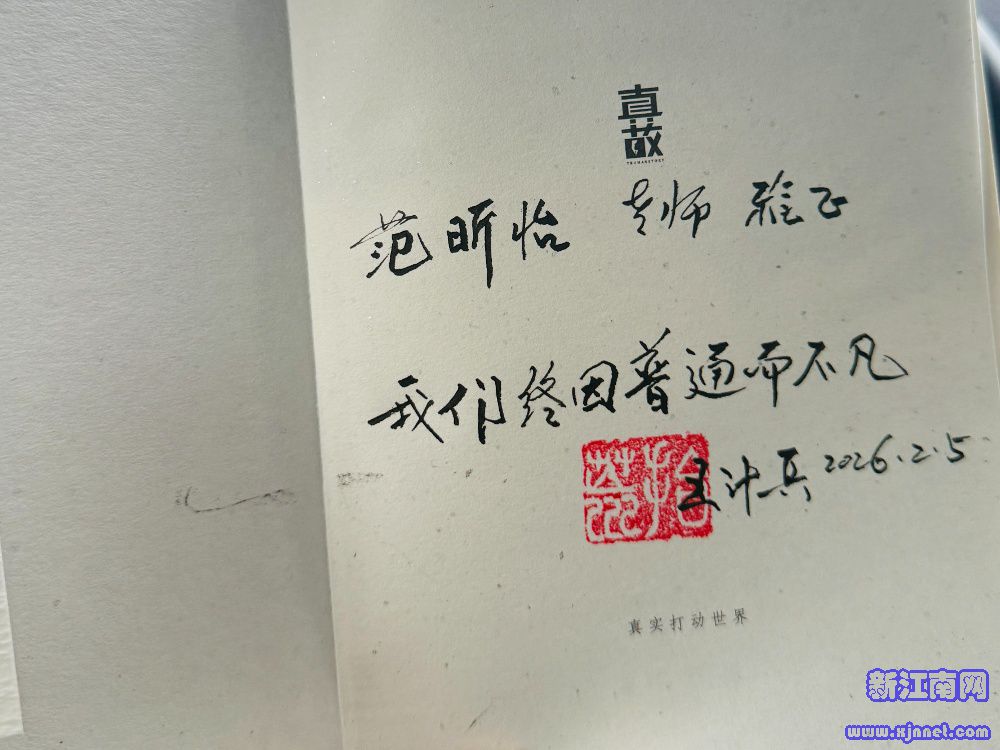 真故
范昕怡 老师 雅正
我们终因普通而不凡
王计兵 2026.2.5
真实打动世界
新江南网
www.xjnnet.com